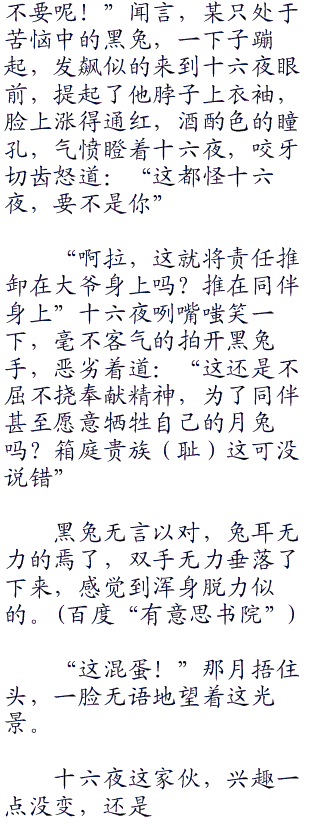 不要呢！”闻言，某只处于
苦恼中的黑兔，一下子蹦
起，发飙似的来到十六夜眼
前，提起了他脖子上衣袖，
脸上涨得通红，酒酌色的瞳
孔，气愤瞪着十六夜，咬牙
切齿怒道：“这都怪十六
夜，要不是你”
“啊拉，这就将责任推
卸在大爷身上吗？推在同伴
身上”十六夜咧嘴嗤笑一
下，毫不客气的拍开黑兔
手，恶劣着道：“这还是不
屈不挠奉献精神，为了同伴
甚至愿意牺牲自己的月兔
吗？箱庭贵族（耻）这可没
说错”
黑兔无言以对，兔耳无
力的焉了，双手无力垂落了
下来，感觉到浑身脱力似
的。(百度“有意思书院”)
“这混蛋！”那月捂住
头，一脸无语地望着这光
景。
十六夜这家伙，兴趣一
点没变，还是